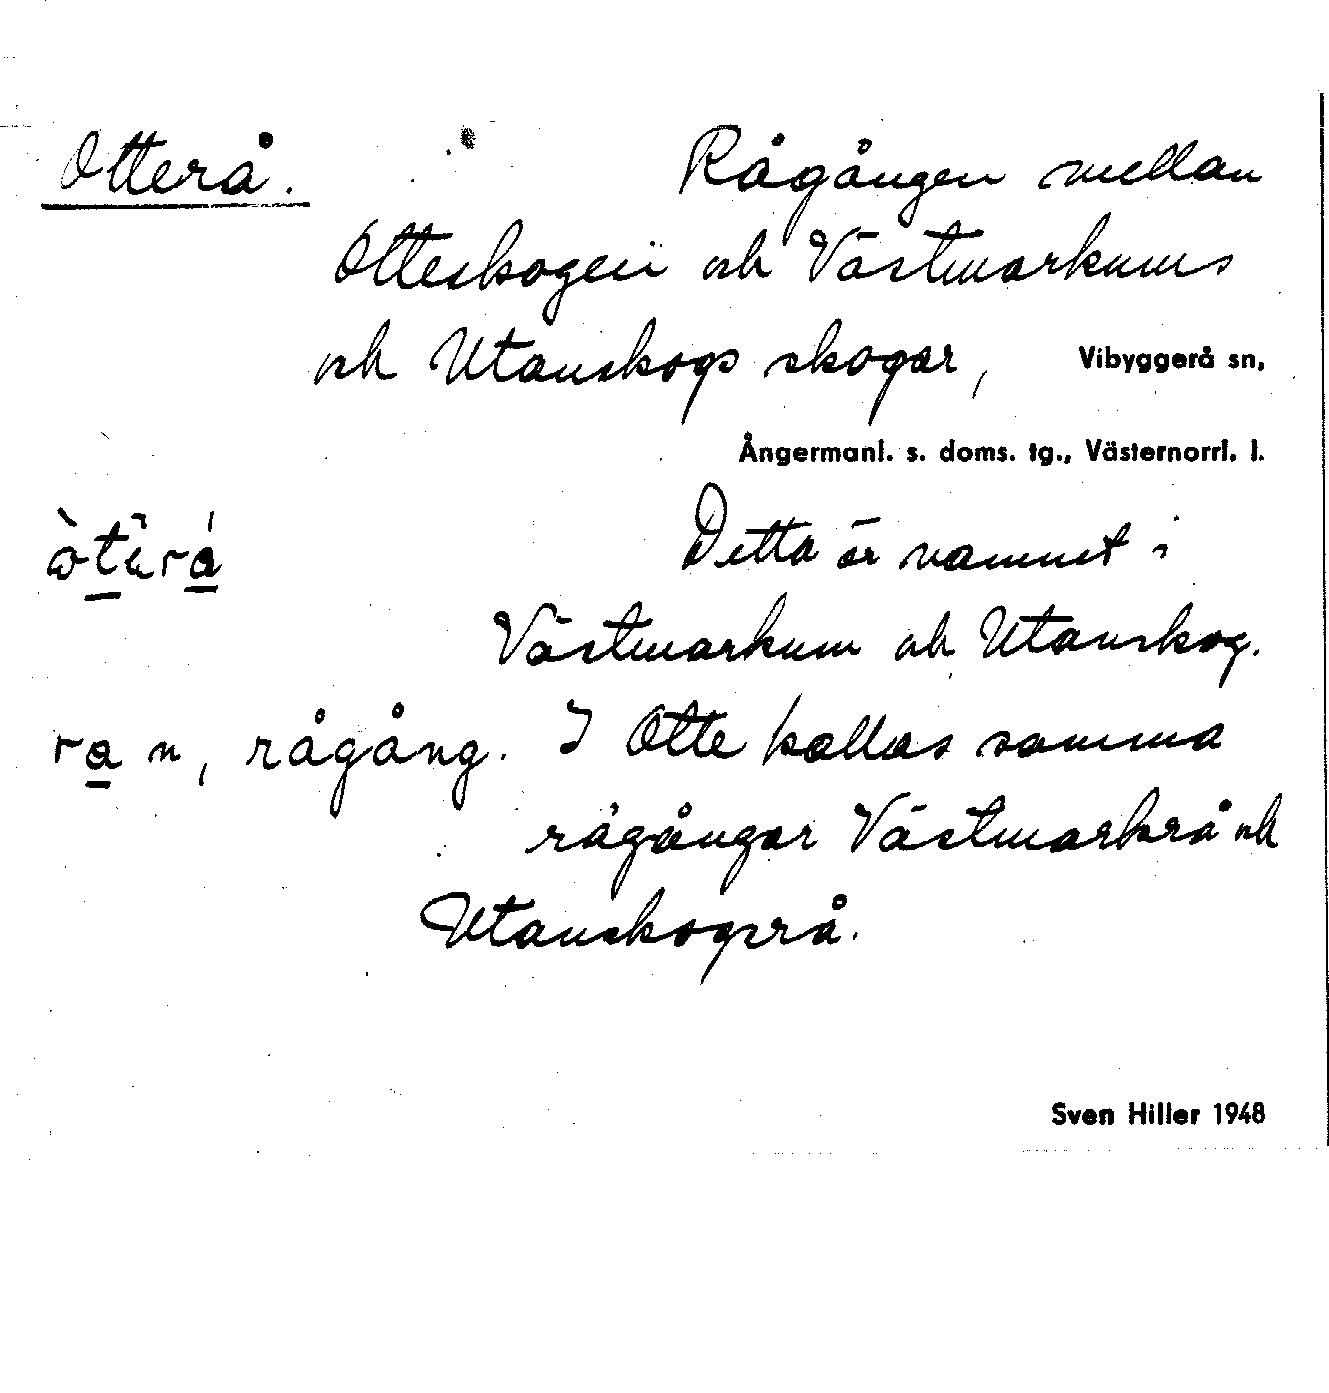 Otterå.
Rågången mellan
Otteskogen och Västmarkums
och Utanskogs skogar,
Vibyggerå sn,
Ångermanl. s. doms. tg., Västernorrl. l.
Detta är namnet i
Västmarkum och Utanskog.
ra n, rågång. I Otte kallas samma
rågångar Västmarkrå och
Utanskogsrå.
Sven Hiller 1948